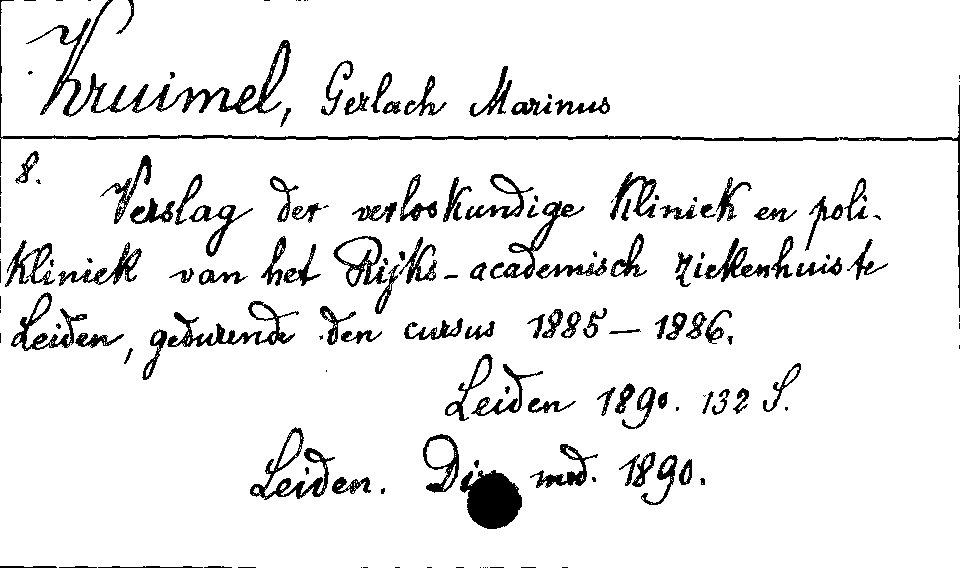 Kruimel, Gerlach Marinus
8.
Verslag der verloskundige Kliniek en poli-
Kliniek van het Rijks-academisch ziekenhuis te
Leiden, gedurende den cursus 1885-1886.
Leiden 1890. 132 S.
Leiden. med. 1890.